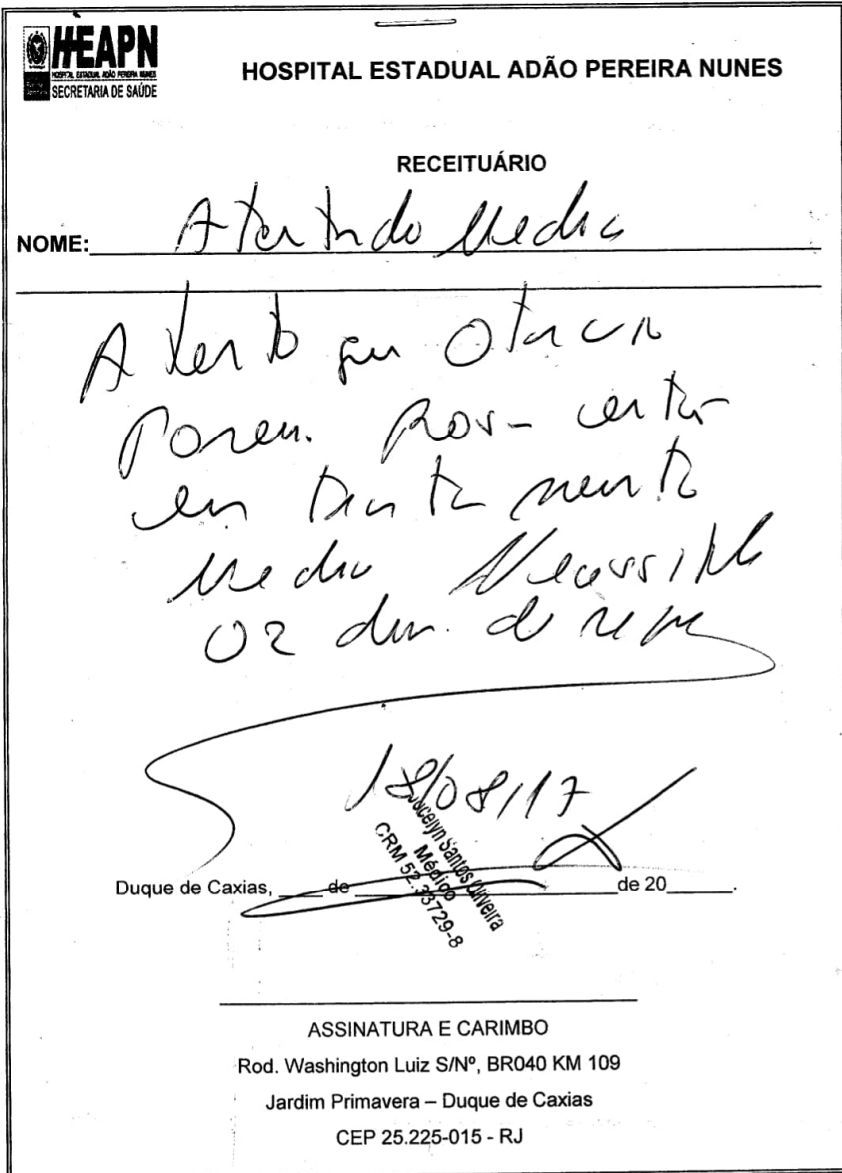 HEAPN
HOSPITAL ESTADUAL ADÃO PEREIRA NUNES
SECRETARIA DE SAÚDE
HOSPITAL ESTADUAL ADÃO PEREIRA NUNES
RECEITUÁRIO
NOME: Atestado Medico
Atesto que
em tratamento
Medico Necessita
02 dias de
18/08/17
Jocelyn Santos Oliveira
Médico
CRM 52.33729-8
Duque de Caxias, ____ de ____ de 20____.
ASSINATURA E CARIMBO
Rod. Washington Luiz S/Nº, BR040 KM 109
Jardim Primavera – Duque de Caxias
CEP 25.225-015 - RJ